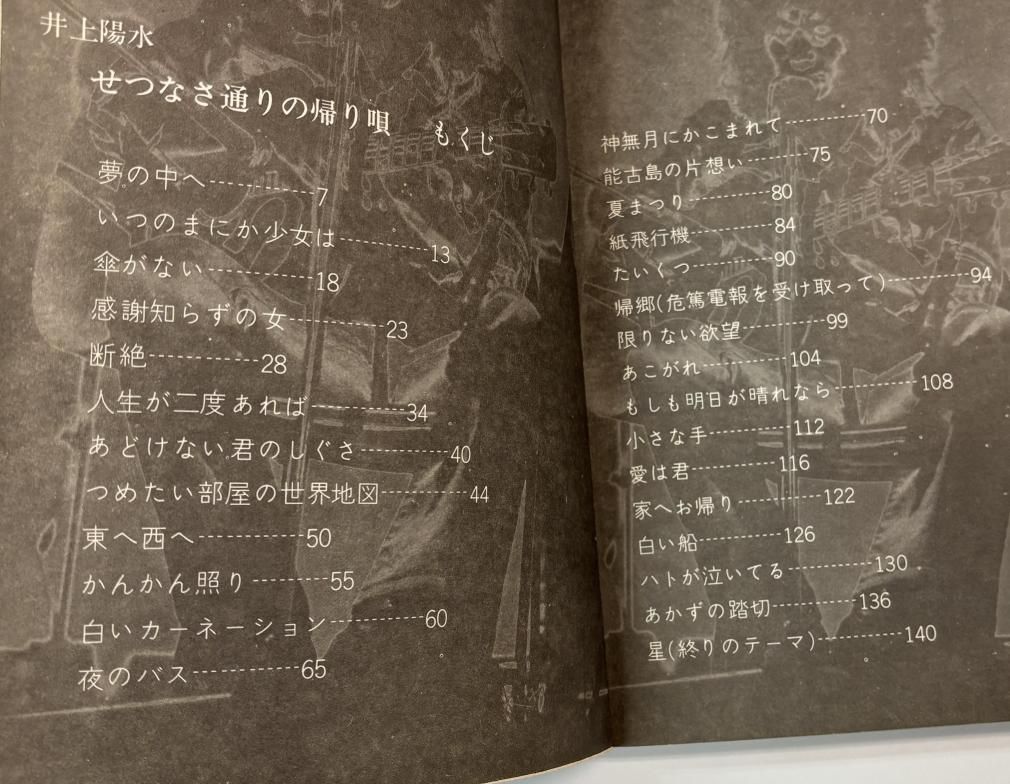 井上陽水
せつなさ通りの帰り唄 もくじ
夢の中へ----------7
いつのまにか少女は----------13
傘がない----------18
感謝知らずの女----------23
断絶----------28
人生が二度あれば----------34
あどけない君のしぐさ----------40
つめたい部屋の世界地図----------44
東へ西へ----------50
かんかん照り----------55
白いカーネーション----------60
夜のバス----------65
神無月にかこまれて----------70
能古島の片想い----------75
夏まつり----------80
紙飛行機----------84
たいくつ----------90
帰郷(危篤電報を受け取って)----------94
限りない欲望----------99
あこがれ----------104
もしも明日が晴れなら----------108
小さな手----------112
愛は君----------116
家へお帰り----------122
白い船----------126
ハトが泣いてる----------130
あかずの踏切----------136
星(終りのテーマ)----------140